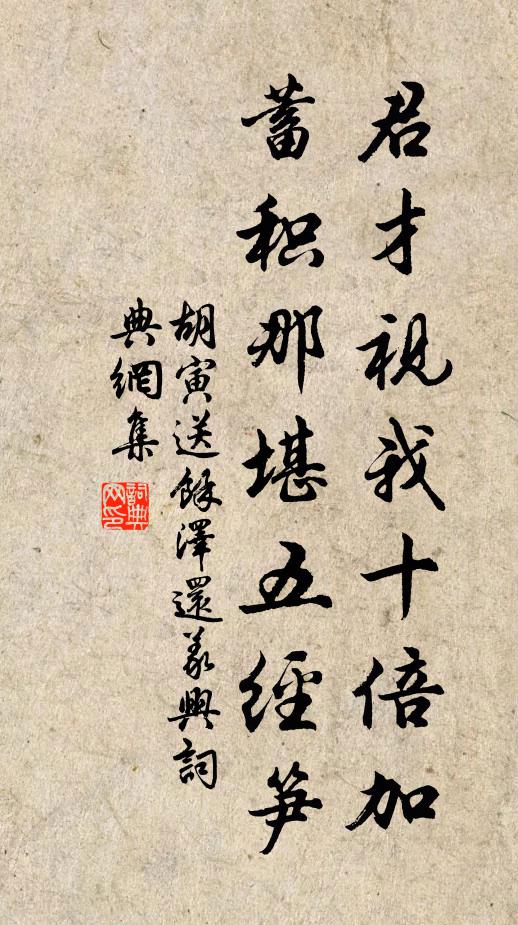 君才視我十倍加
蓄积那堪五經笋
胡寅送餘澤還義興詞
典網集
詞典
网印